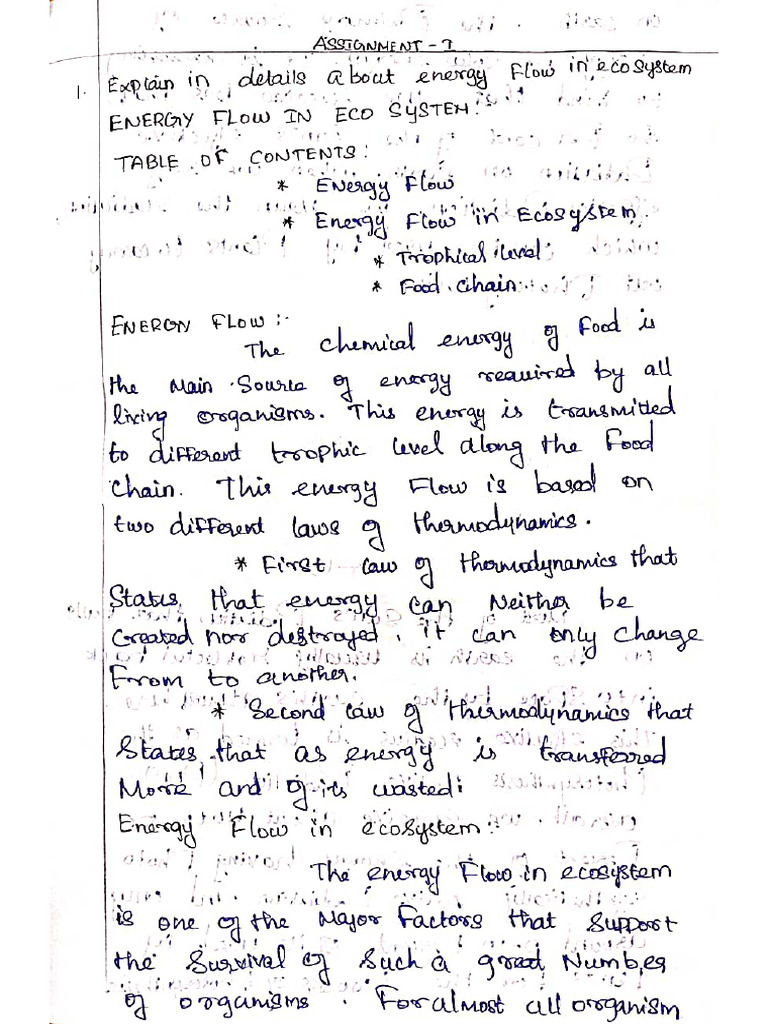 ASSIGNMENT - 1
1. Explain in details about energy flow in ecosystem
ENERGY FLOW IN ECO SYSTEM:
TABLE OF CONTENTS:
* Energy Flow
* Energy Flow in Ecosystem
* Trophical level
* Food chain
ENERGY FLOW:-
The chemical energy of Food is
the Main Source of energy required by all
living organisms. This energy is transmitted
to different trophic level along the Food
Chain. This energy Flow is based on
two different laws of thermodynamics.
* First law of thermodynamics that
States, that energy can Neither be
created nor destroyed, it can only change
From to another.
* Second law of thermodynamics that
States, that as energy is transferred
More and of its wasted:
Energy Flow in ecosystem:-
The energy Flow in ecosystem
is one of the Major Factors that support
the Survival of Such a great Number
of organisms. For almost all organism